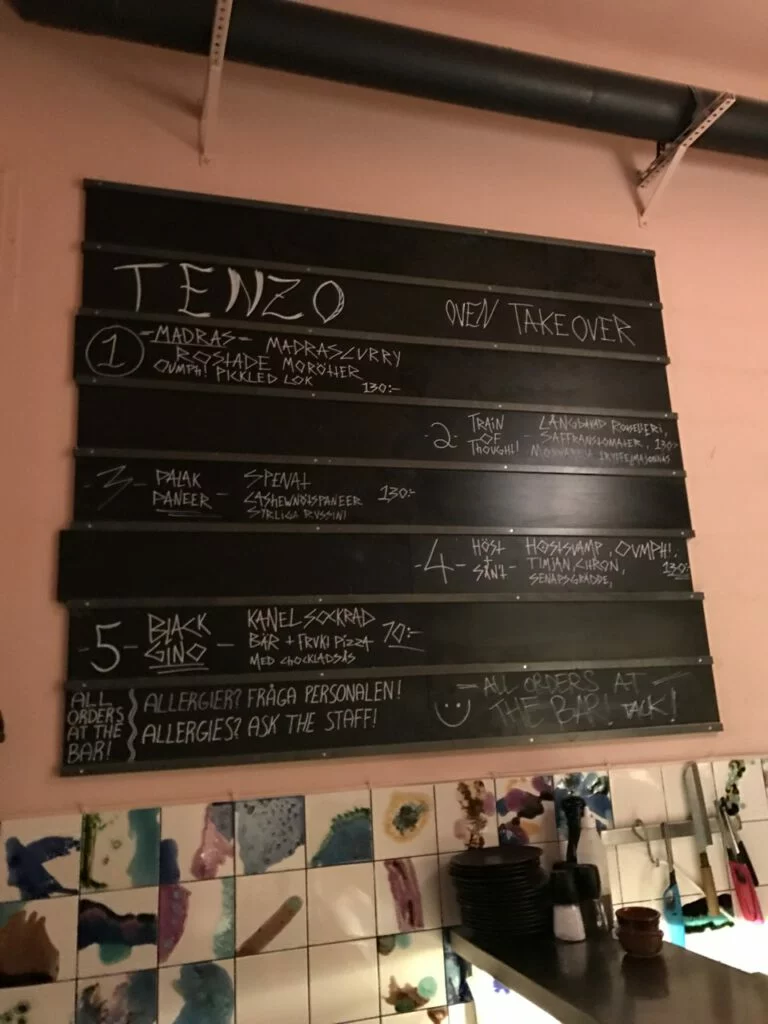 TENZO
OVEN TAKEOVER
1 -MADRAS- MADRASCURRY
ROSTADE MORÖTTER
OUMPH! PICKLED LÖK
130:-
-2- TRAIN OF THOUGHT! - LÅNGBAKAD ROTSELLERI,
SAFFRANSTOMATER, 130:-
TRYFFELMAJONNÄS
-3- PALAK PANEER - SPENAT
CASHEWNÖTSPANEER 130:-
SYRLIGA RUSSIN!
-4- HÖST + SÅNT - HÖSTSVAMP, OUMPH!,
TIMJAN, CITRON, 130:-
SENAPSGRÄDDE,
-5- BLACK GINO - KANELSOCKRAD
BÄR + FRUKTPIZZA 70:-
MED CHOCKLADSÅS
ALL
ORDERS
AT THE
BAR!
ALLERGIER? FRÅGA PERSONALEN!
ALLERGIES? ASK THE STAFF!
- ALL ORDERS AT -
THE BAR! TACK!